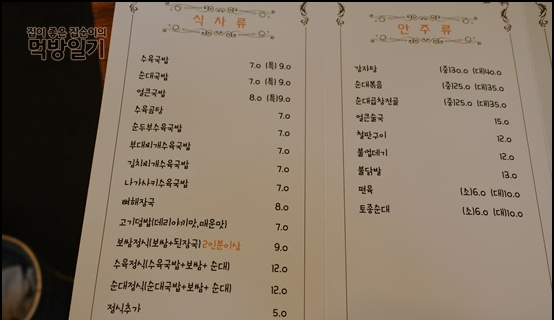 집이 좋은 집순이의
먹방일기
식사류
수육국밥 7.0 (특) 9.0
순대국밥 7.0 (특) 9.0
얼큰국밥 8.0 (특)9.0
수육곰탕 7.0
순두부수육국밥 7.0
부대찌개수육국밥 7.0
김치찌개수육국밥 7.0
나가사키수육국밥 7.0
뼈해장국 8.0
고기덮밥(데리야끼맛,매운맛) 7.0
보쌈정식(보쌈+된장국) 2인분이상 9.0
수육정식(수육국밥+보쌈+ 순대) 12.0
순대정식(순대국밥+보쌈+ 순대) 12.0
정식추가 5.0
안주류
감자탕 (중)30.0 (대)40.0
순대볶음 (중)25.0 (대)35.0
순대곱창전골 (중)25.0 (대)35.0
얼큰술국 15.0
철판구이 12.0
불껍데기 12.0
불닭발 13.0
편육 (소)6.0 (대)10.0
토종순대 (소)6.0 (대)10.0